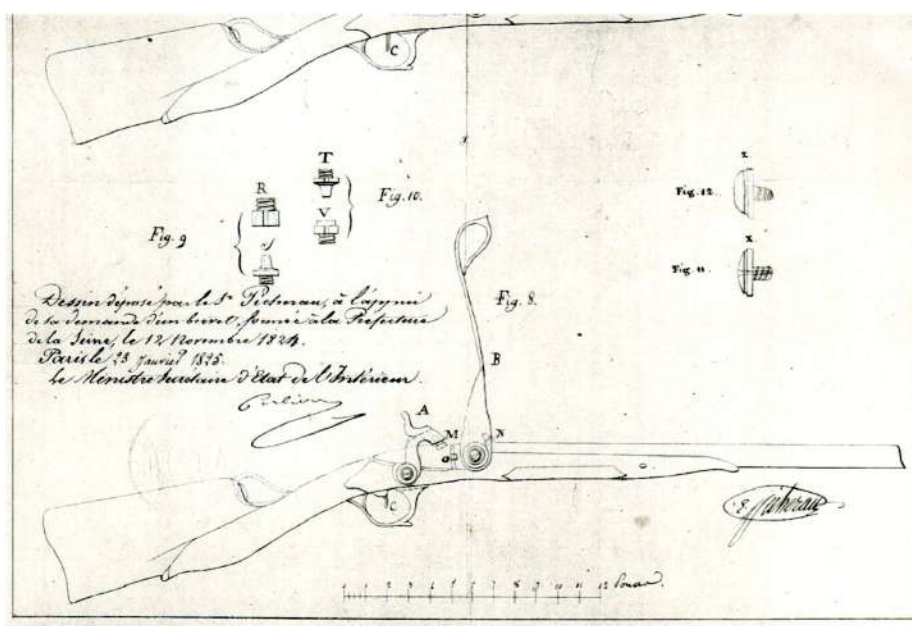 C
T
R
Fig. 10.
V
Fig. 9
S
Z
Fig. 12.
X.
Fig. 11.
Dessin déposé par le Sr. Pécherau, à l'appui
de sa demande d'un brevet, formée à la Préfecture
de la Seine, le 12 Novembre 1824.
Paris le 23 Janvier 1825.
Le Ministre Secrétaire d'Etat de l'Intérieur.
Fig. 8.
B
A
M
N
G
C
0 1 2 3 4 5 6 7 8 9 10 11 12 Pouces.